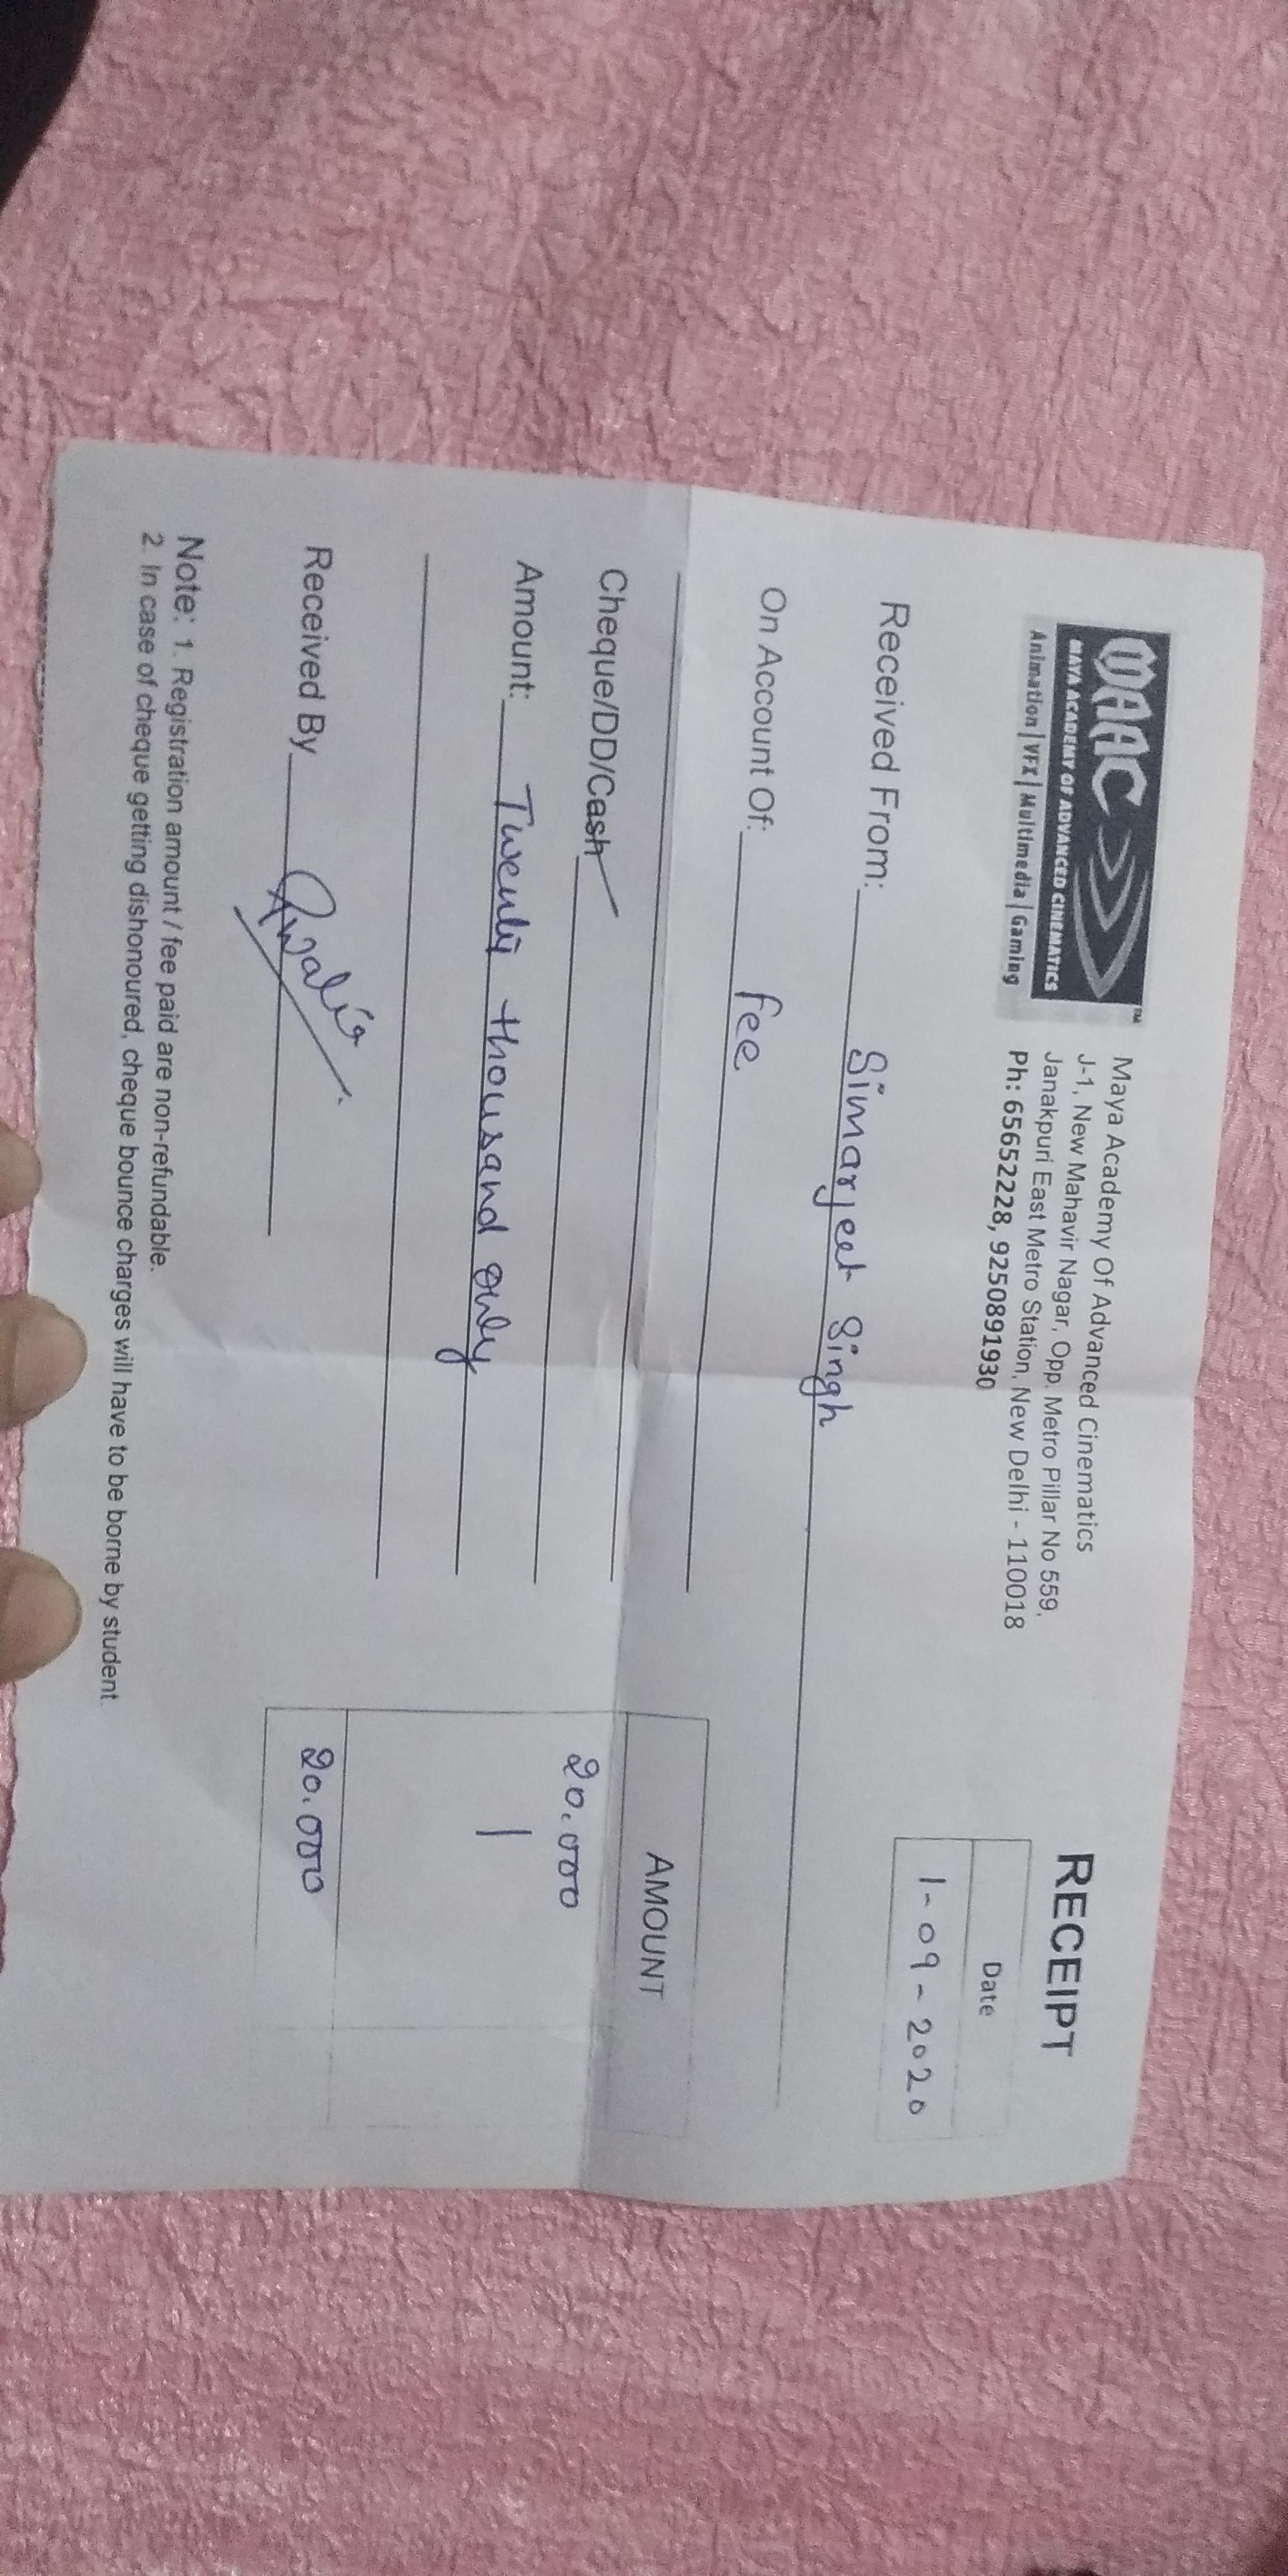 MAAC
TM
MAYA ACADEMY OF ADVANCED CINEMATICS
Animation | VFX | Multimedia | Gaming
Maya Academy Of Advanced Cinematics
J-1, New Mahavir Nagar, Opp. Metro Pillar No 559,
Janakpuri East Metro Station, New Delhi - 110018
Ph: 65652228, 9250891930
RECEIPT
Date
1-09-2020
Received From: Simarjeet Singh
On Account Of: fee
AMOUNT
Cheque/DD/Cash
20.000
Amount: Twenty thousand only
Received By
20.000
Note: 1. Registration amount / fee paid are non-refundable.
2. In case of cheque getting dishonoured, cheque bounce charges will have to be borne by student.